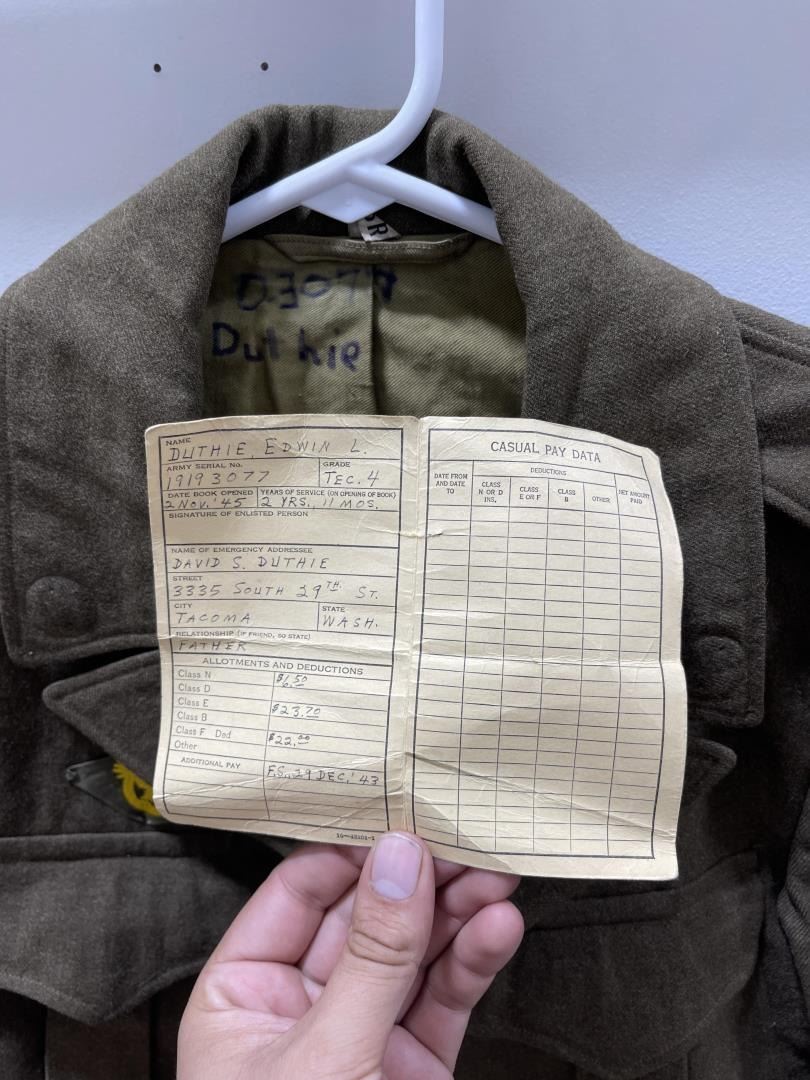 D3077
Duthie
NAME
DUTHIE, EDWIN L.
ARMY SERIAL No. GRADE
19193077 TEC. 4
DATE BOOK OPENED YEARS OF SERVICE (ON OPENING OF BOOK)
2 NOV. '45 2 YRS., 11 MOS.
SIGNATURE OF ENLISTED PERSON
NAME OF EMERGENCY ADDRESSEE
DAVID S. DUTHIE
STREET
3335 SOUTH 29TH. ST.
CITY STATE
TACOMA WASH.
RELATIONSHIP (IF FRIEND, SO STATE)
FATHER
ALLOTMENTS AND DEDUCTIONS
Class N $6.50
Class D
Class E $23.70
Class B
Class F Ded $22.00
Other
ADDITIONAL PAY F.S., 29 DEC,' 43
CASUAL PAY DATA
DATE FROM AND DATE TO
DEDUCTIONS
CLASS N OR D INS.
CLASS E OR F
CLASS B
OTHER
NET AMOUNT PAID